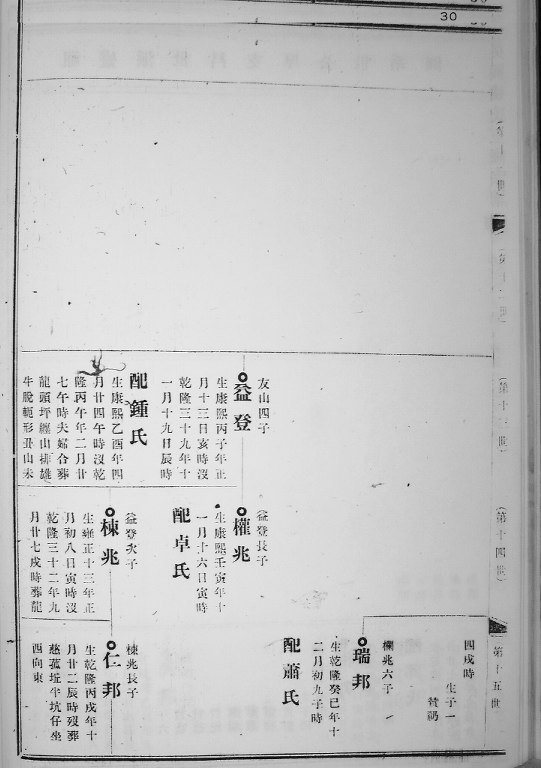 30
（第十三世）
友山四子
益登
生康熙丙子年正
月十三日亥時沒
乾隆三十九年十
一月十九日辰時
配鍾氏
生康熙乙酉年四
月廿四午時沒乾
隆丙午年二月廿
七午時夫婦合葬
龍頭坪纏山排雄
牛脫軛形丑山未
（第十四世）
益登長子
權兆
生康熙壬寅年十
一月十六日寅時
配卓氏
益登次子
棟兆
生雍正十三年正
月初八日寅時沒
乾隆三十二年九
月廿七戌時葬龍
第十五世
四戌時
生子一
欄兆六子
瑞邦
生乾隆癸巳年十
二月初九子時
配蕭氏
棟兆長子
仁邦
生乾隆丙戌年十
月廿二辰時歿葬
慈菰坵牛坑仔坐
西向東